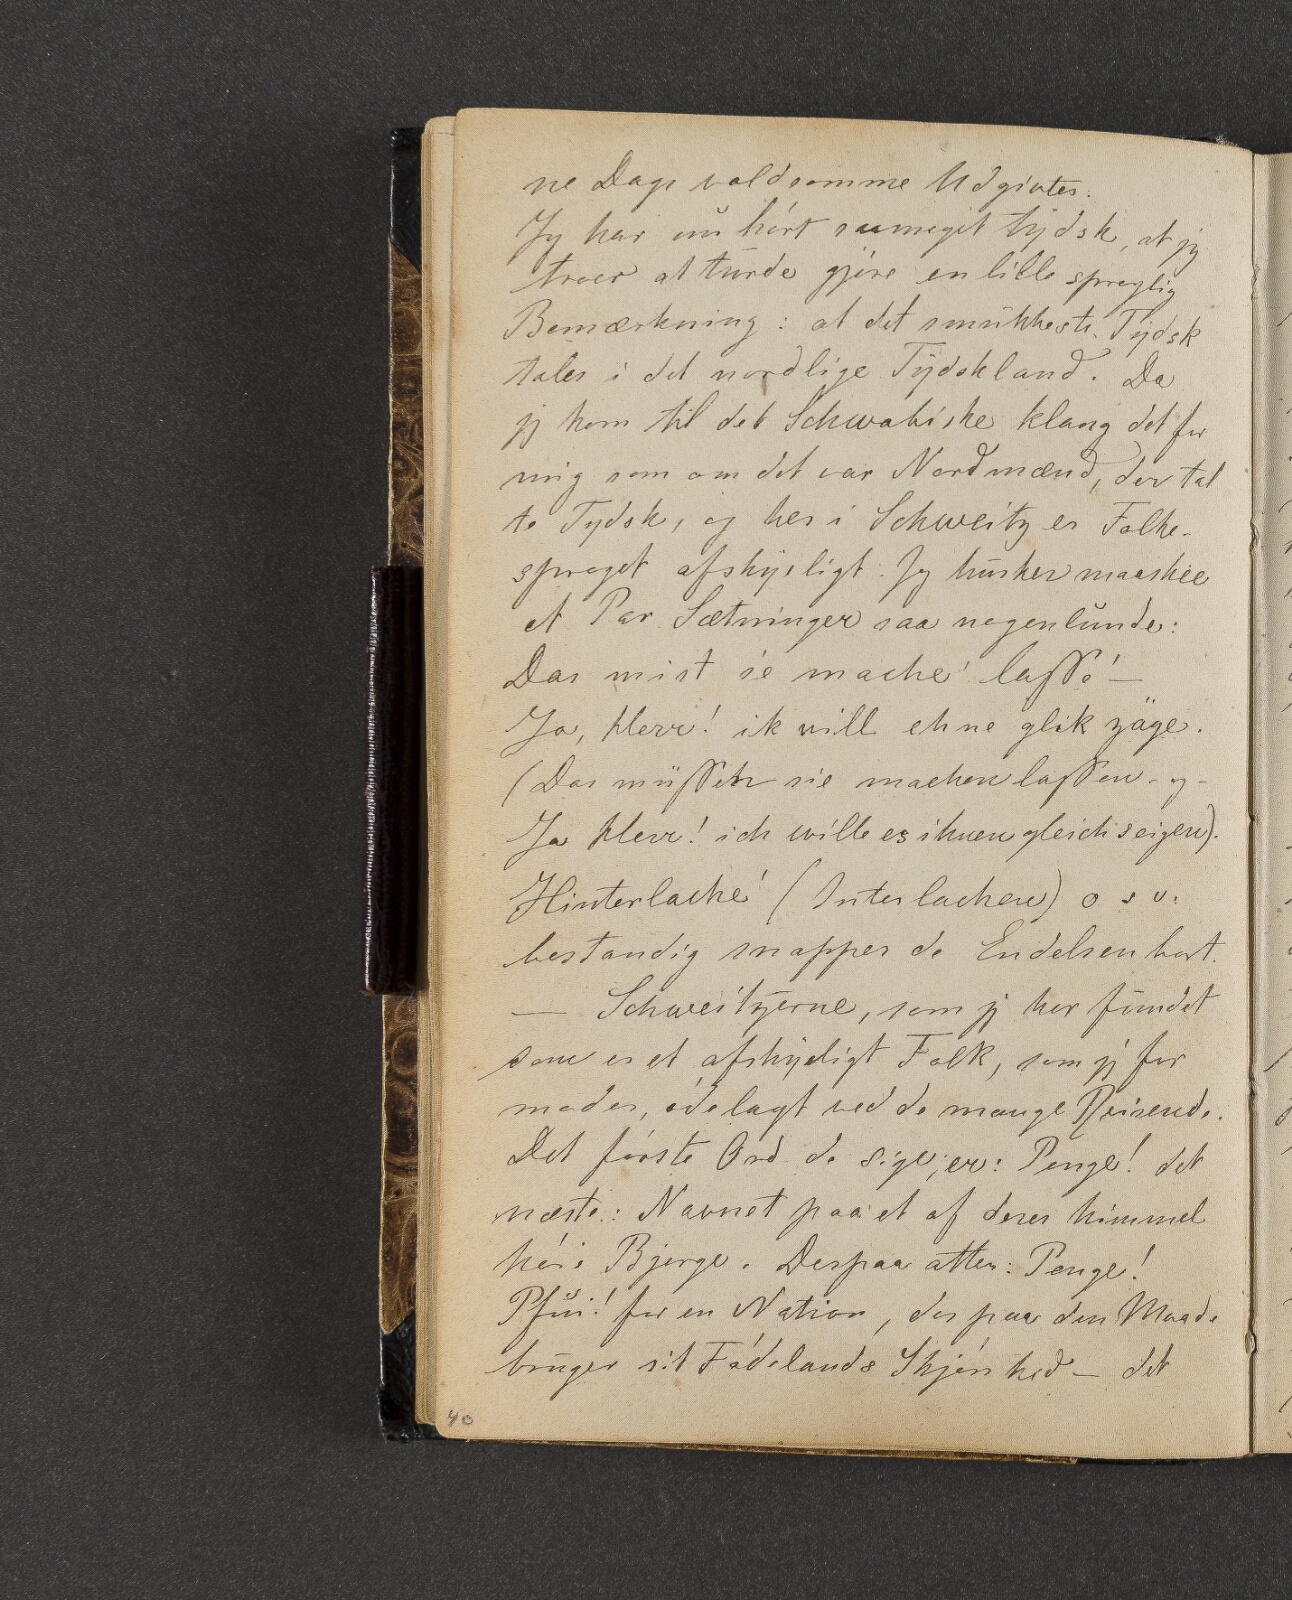 ne Dags voldsomme Udgivter.
Jeg har nu hört saameget tydsk, at jeg
troer at turde gjöre en lille sproglig
Bemærkning: at det smukkeste Tydsk
tales i det nordlige Tydskland. Da
jeg kom til det Schwabiske klang det for
mig som om det var Nordmænd, der tal
te Tydsk, og her i Schweitz er Folke-
sproget afskyeligt. Jeg husker maaskee
et Par Sætninger saa nogenlunde:
Das mist sé maché lassé! —
Ja, Herr! ik will ehne glik zäge.
(Das müssen sie machen lassen - og -
Ja Herr! ich wille es ihnen gleich seigen).
Hinterlaché (Interlachen) o s v.
bestandig snapper de Endelsen bort.
— Schweitzerne, som jeg har fundet
dem er et afskyeligt Folk, som jeg for
moder, ödelagt ved de mange Reisende.
Det förste Ord de sige, er: Penge! det
næste: Navnet paa et af deres himmel
höie Bjerge. Derpaa atter: Penge!
Pfui! for en Nation, der paa den Maade
bruger sit Födelands Skjönhed — det
40